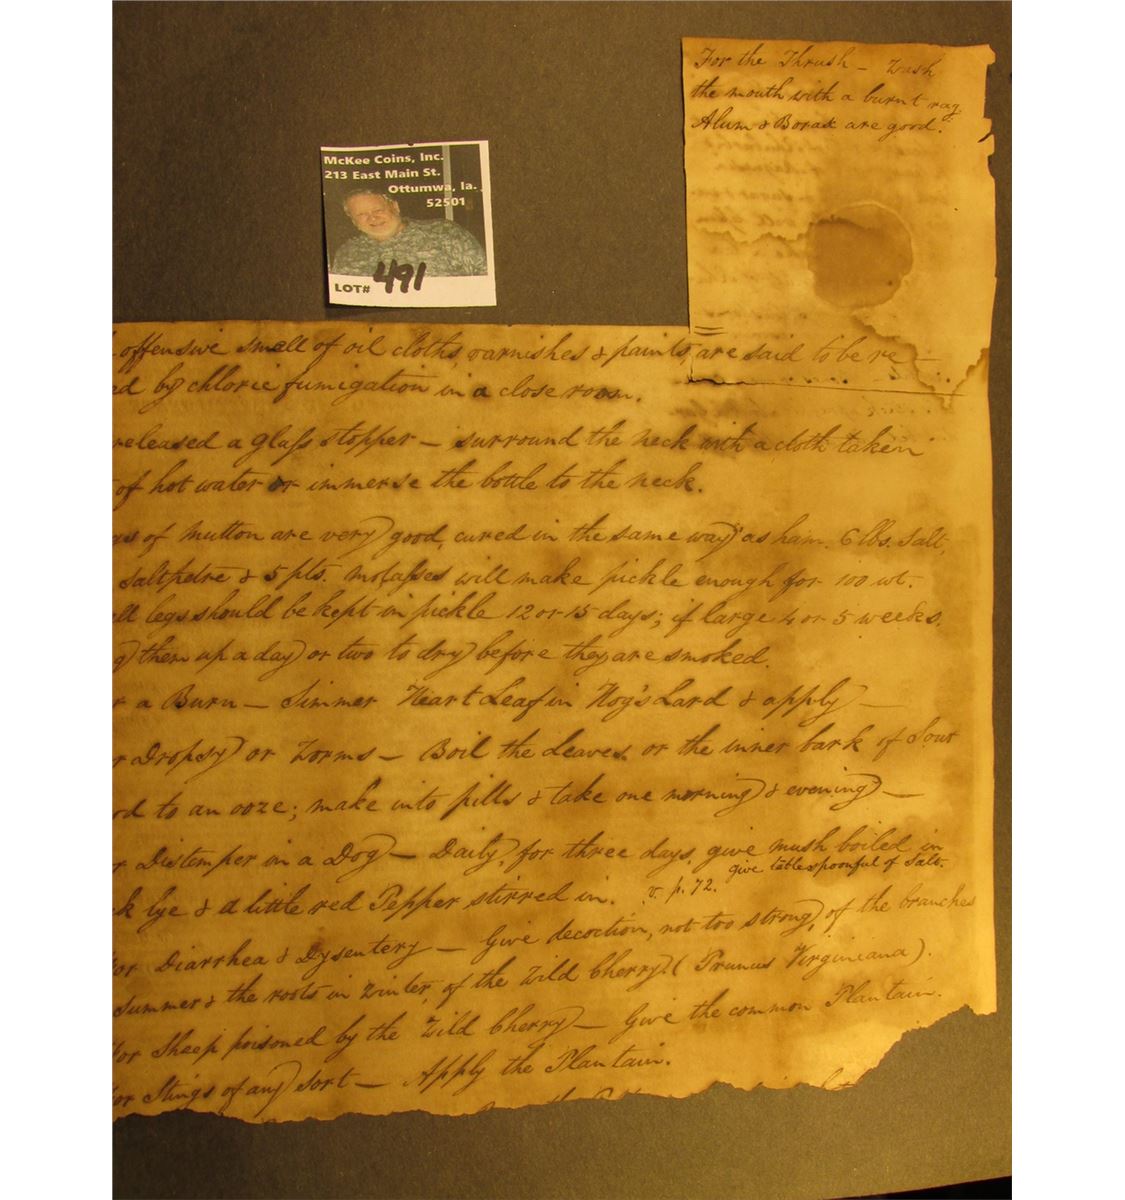 For the Thrush – Wash
the mouth with a burnt rag
Alum & Borax are good.
McKee Coins, Inc.
213 East Main St.
Ottumwa, Ia.
52501
LOT# 491
offensive smell of oil cloths, varnishes & paints, are said to be re–
ed by chloric fumigation in a close room.
released a glass stopper – surround the neck with a cloth taken
of hot water or immerse the bottle to the neck.
gs of mutton are very good, cured in the same way as ham. 6 lbs. Salt,
Saltpetre & 5 pts. molasses will make pickle enough for 100 wt.
ll legs should be kept in pickle 12 or 15 days; if large 4 or 5 weeks.
g them up a day or two to dry before they are smoked.
r a Burn – Simmer Heart Leaf in Hog's Lard & apply –
r Dropsy or Worms – Boil the Leaves or the inner bark of Sour
od to an ooze; make into pills & take one morning & evening –
r Distemper in a Dog – Daily, for three days, give mush boiled in
give tablespoonful of Salt.
k lye & a little red Pepper stirred in. v. p. 72.
or Diarrhea & Dysentery – Give decoction, not too strong, of the branches
Summer & the roots in Winter, of the Wild Cherry. (Prunus Virginiana).
or Sheep poisoned by the Wild Cherry – Give the common Plantain.
or Stings of any sort – Apply the Plantain.